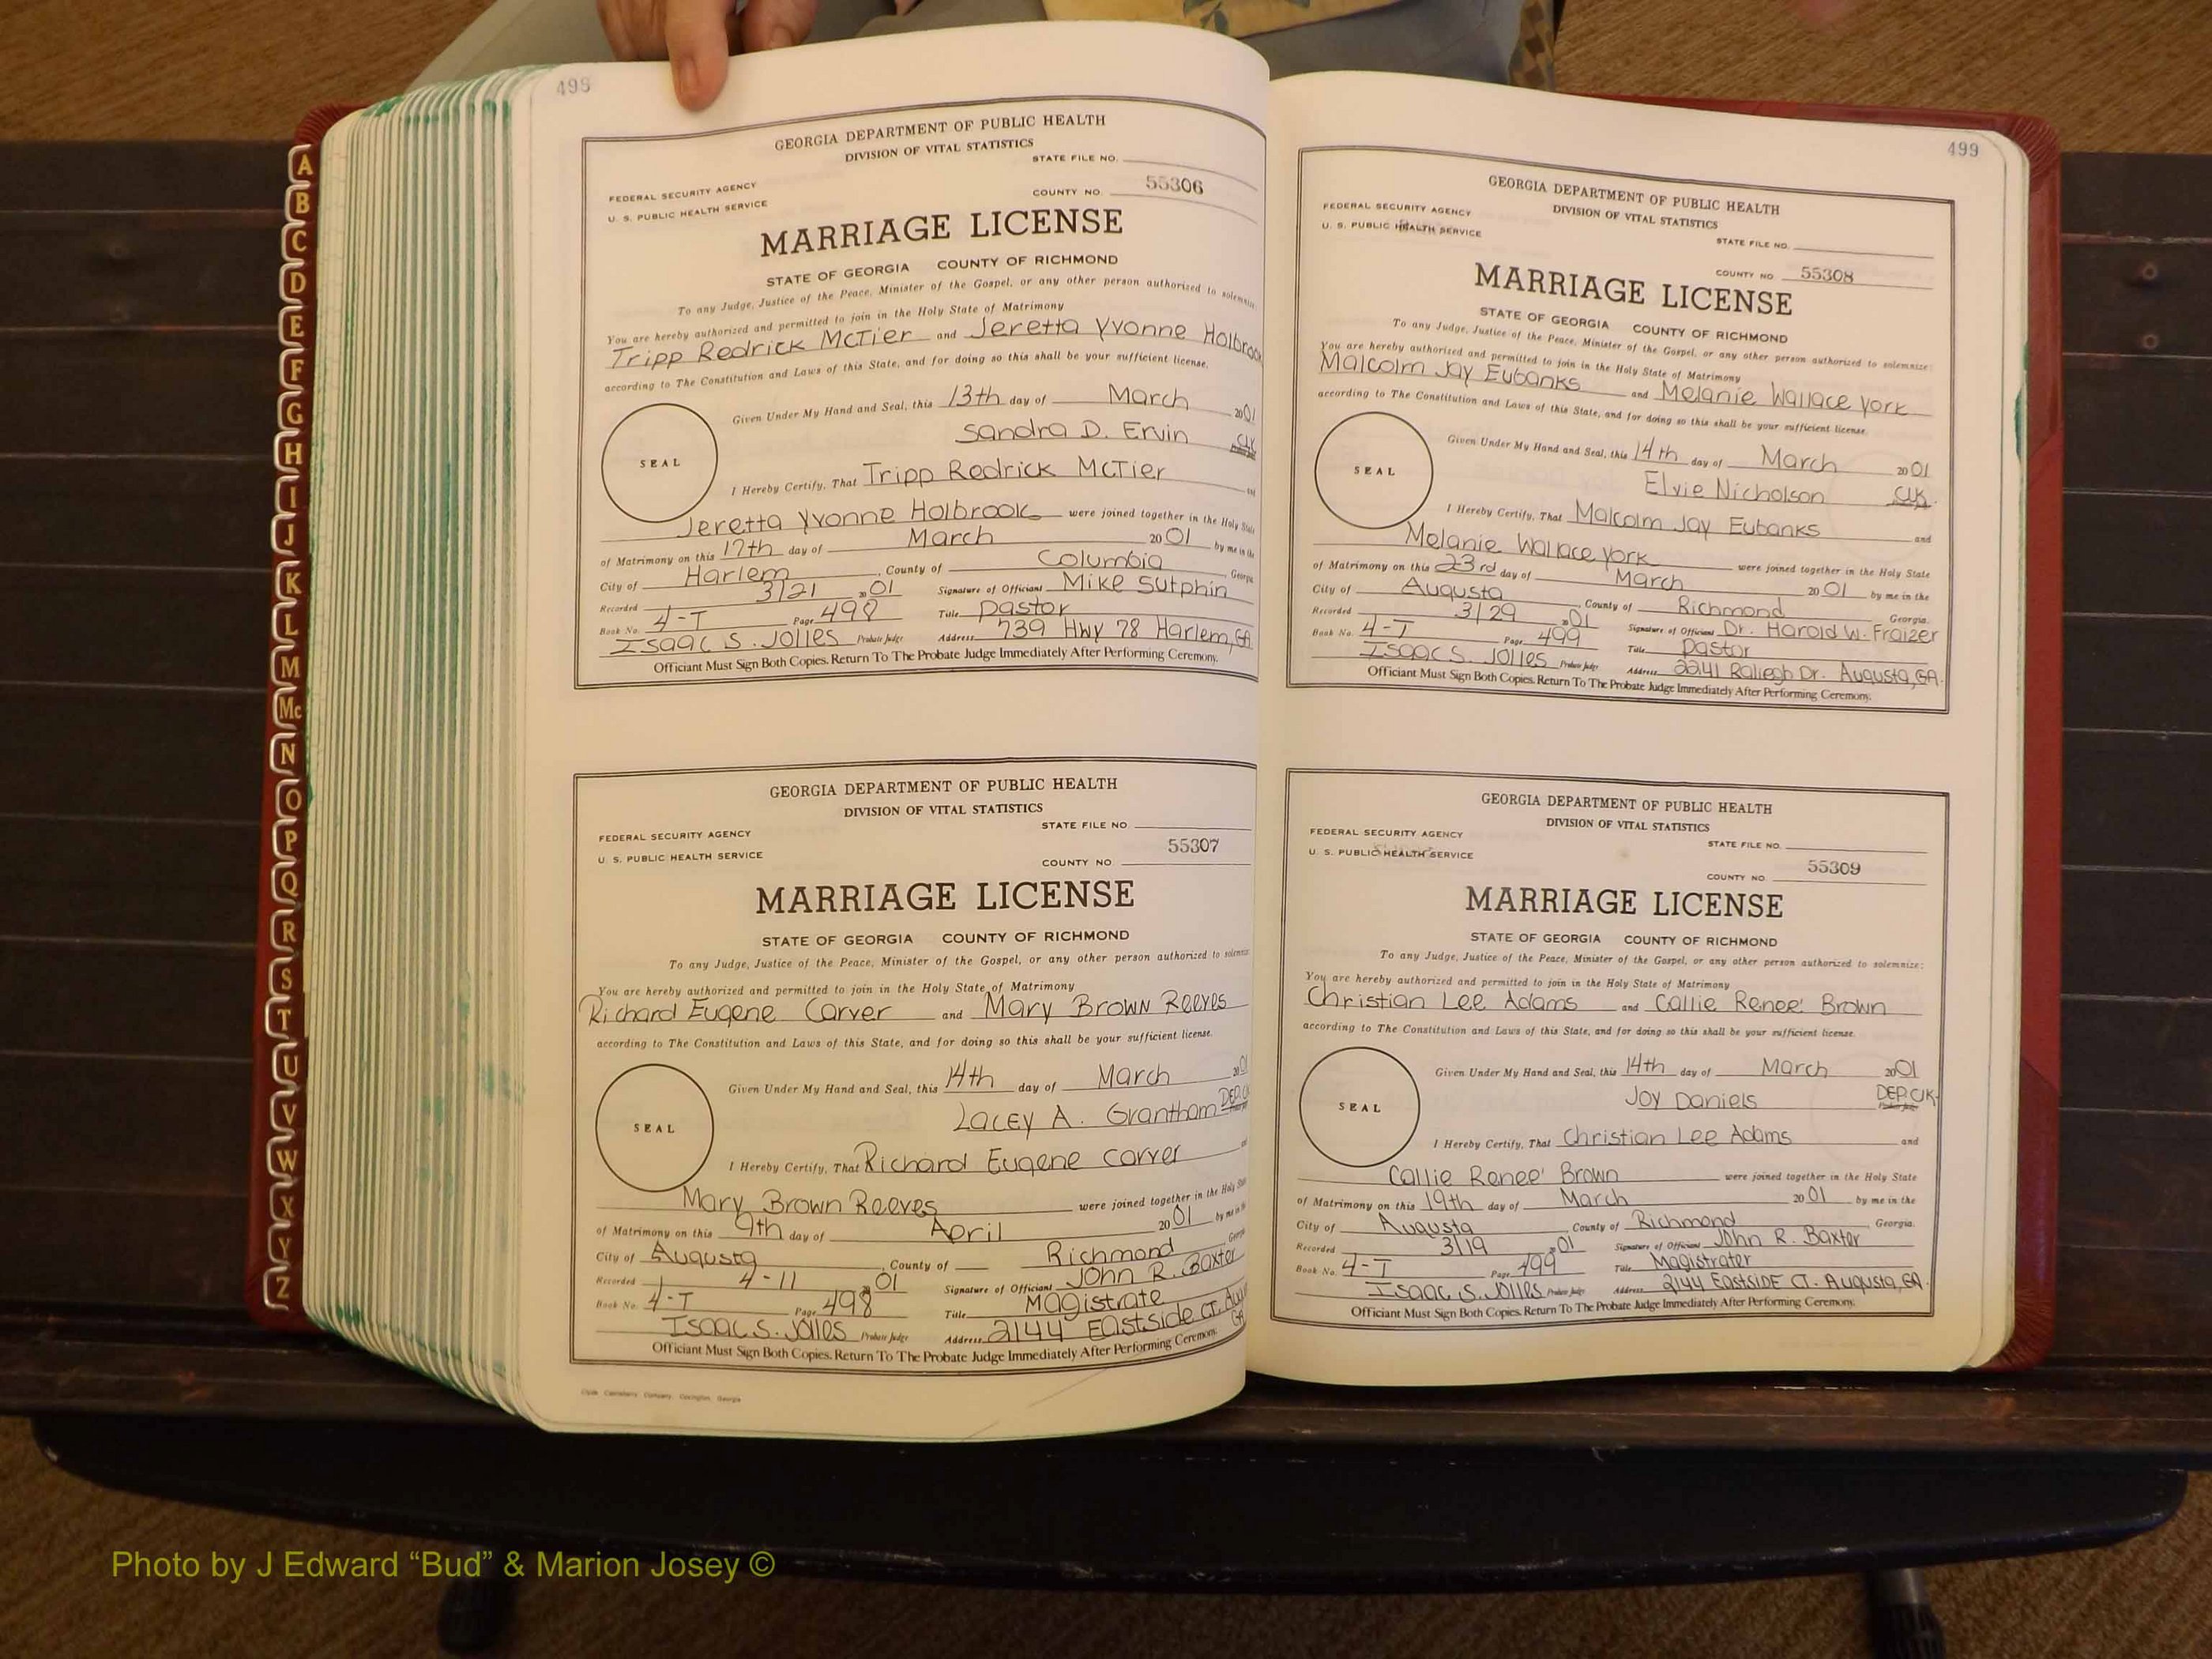 498
GEORGIA DEPARTMENT OF PUBLIC HEALTH
DIVISION OF VITAL STATISTICS
STATE FILE NO.
FEDERAL SECURITY AGENCY
U. S. PUBLIC HEALTH SERVICE
COUNTY NO. 55306
MARRIAGE LICENSE
STATE OF GEORGIA COUNTY OF RICHMOND
To any Judge, Justice of the Peace, Minister of the Gospel, or any other person authorized to solemnize:
You are hereby authorized and permitted to join in the Holy State of Matrimony
Tripp Redrick McTier and Jeretta Yvonne Holbrook
according to The Constitution and Laws of this State, and for doing so this shall be your sufficient license.
Given Under My Hand and Seal, this 13th day of March 2001
Sandra D. Ervin CLK
SEAL
I Hereby Certify, That Tripp Redrick McTier and
Jeretta Yvonne Holbrook were joined together in the Holy State
of Matrimony on this 17th day of March 2001 by me in the
City of Harlem, County of Columbia, Georgia
Recorded 3/21 01 Signature of Officiant Mike Sutphin
Book No. 4-T Page 498 Title Pastor
Isaac S. Jolles Probate Judge Address 739 Hwy 78 Harlem, GA
Officiant Must Sign Both Copies. Return To The Probate Judge Immediately After Performing Ceremony.
GEORGIA DEPARTMENT OF PUBLIC HEALTH
DIVISION OF VITAL STATISTICS
STATE FILE NO.
FEDERAL SECURITY AGENCY
U. S. PUBLIC HEALTH SERVICE
COUNTY NO. 55307
MARRIAGE LICENSE
STATE OF GEORGIA COUNTY OF RICHMOND
To any Judge, Justice of the Peace, Minister of the Gospel, or any other person authorized to solemnize:
You are hereby authorized and permitted to join in the Holy State of Matrimony
Richard Eugene Carver and Mary Brown Reeves
according to The Constitution and Laws of this State, and for doing so this shall be your sufficient license.
Given Under My Hand and Seal, this 14th day of March 2001
Lacey A. Grantham DEP.CLK
SEAL
I Hereby Certify, That Richard Eugene Carver and
Mary Brown Reeves were joined together in the Holy State
of Matrimony on this 9th day of April 2001 by me in the
City of Augusta, County of Richmond, Georgia
Recorded 4-11 01 Signature of Officiant John R. Baxter
Book No. 4-T Page 498 Title Magistrate
Isaac S. Jolles Probate Judge Address 2144 Eastside CT. Aug GA
Officiant Must Sign Both Copies. Return To The Probate Judge Immediately After Performing Ceremony.
Company, Covington, Georgia
499
GEORGIA DEPARTMENT OF PUBLIC HEALTH
DIVISION OF VITAL STATISTICS
STATE FILE NO.
FEDERAL SECURITY AGENCY
U. S. PUBLIC HEALTH SERVICE
COUNTY NO. 55308
MARRIAGE LICENSE
STATE OF GEORGIA COUNTY OF RICHMOND
To any Judge, Justice of the Peace, Minister of the Gospel, or any other person authorized to solemnize:
You are hereby authorized and permitted to join in the Holy State of Matrimony
Malcolm Jay Eubanks and Melanie Wallace York
according to The Constitution and Laws of this State, and for doing so this shall be your sufficient license.
Given Under My Hand and Seal, this 14th day of March 2001
Elvie Nicholson CLK.
SEAL
I Hereby Certify, That Malcolm Jay Eubanks and
Melanie Wallace York were joined together in the Holy State
of Matrimony on this 23rd day of March 2001 by me in the
City of Augusta, County of Richmond, Georgia.
Recorded 3/29 01 Signature of Officiant Dr. Harold W. Fraizer
Book No. 4-T Page 499 Title Pastor
Isaac S. Jolles Probate Judge Address 2241 Raliegh Dr. Augusta, GA.
Officiant Must Sign Both Copies. Return To The Probate Judge Immediately After Performing Ceremony.
GEORGIA DEPARTMENT OF PUBLIC HEALTH
DIVISION OF VITAL STATISTICS
STATE FILE NO.
FEDERAL SECURITY AGENCY
U. S. PUBLIC HEALTH SERVICE
COUNTY NO. 55309
MARRIAGE LICENSE
STATE OF GEORGIA COUNTY OF RICHMOND
To any Judge, Justice of the Peace, Minister of the Gospel, or any other person authorized to solemnize:
You are hereby authorized and permitted to join in the Holy State of Matrimony
Christian Lee Adams and Callie Renee' Brown
according to The Constitution and Laws of this State, and for doing so this shall be your sufficient license.
Given Under My Hand and Seal, this 14th day of March 2001
Joy Daniels DEP.CLK.
SEAL
I Hereby Certify, That Christian Lee Adams and
Callie Renee' Brown were joined together in the Holy State
of Matrimony on this 19th day of March 2001 by me in the
City of Augusta, County of Richmond, Georgia.
Recorded 3/19 01 Signature of Officiant John R. Baxter
Book No. 4-T Page 499 Title Magistrater
Isaac S. Jolles Probate Judge Address 2144 EastSIDE CT. Augusta, GA
Officiant Must Sign Both Copies. Return To The Probate Judge Immediately After Performing Ceremony.
A
B
C
D
E
F
G
H
I
J
K
L
M
Mc
N
O
P
Q
R
S
T
U
V
W
X
Y
Z
Photo by J Edward “Bud” & Marion Josey ©